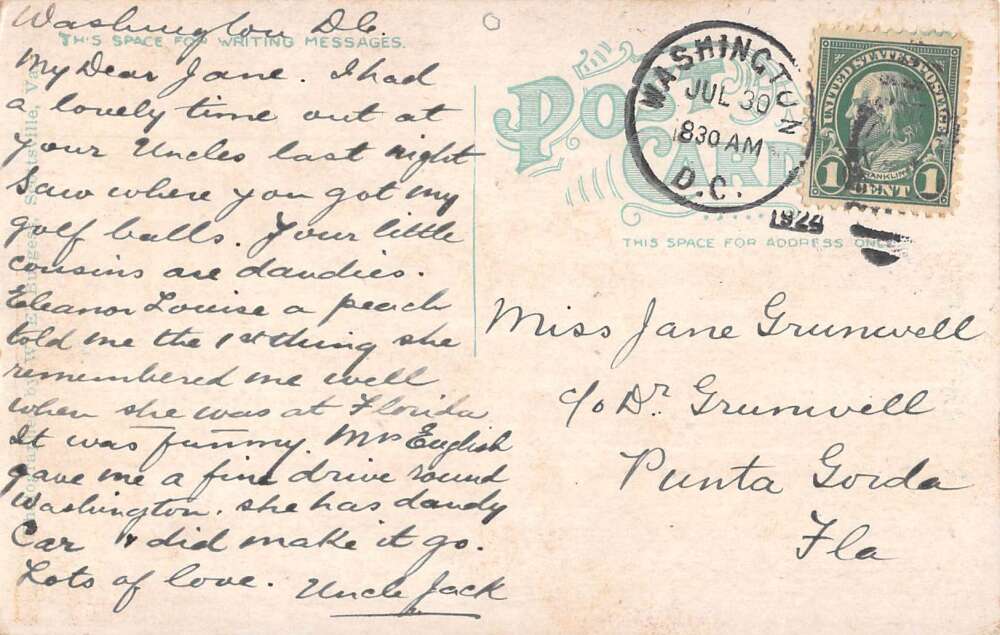 Washington D.C.
THIS SPACE FOR WRITING MESSAGES.
My Dear Jane. I had
a lovely time out at
your Uncles last night
Saw where you got my
golf balls. Your little
cousins are dandies.
Eleanor Louise a peach
told me the 1st thing she
remembered me well
when she was at Florida
It was funny. Mrs English
gave me a fine drive round
Washington. she has dandy
Car & did make it go.
Lots of love. Uncle Jack
POST CARD
WASHINGTON
JUL 30
830 AM
D.C.
1924
UNITED STATES POSTAGE
FRANKLIN
1 CENT 1
THIS SPACE FOR ADDRESS ONLY
Miss Jane Grunwell
c/o Dr Grunwell
Punta Gorda
Fla
by W. E. Burgess, Scottsville, Va.